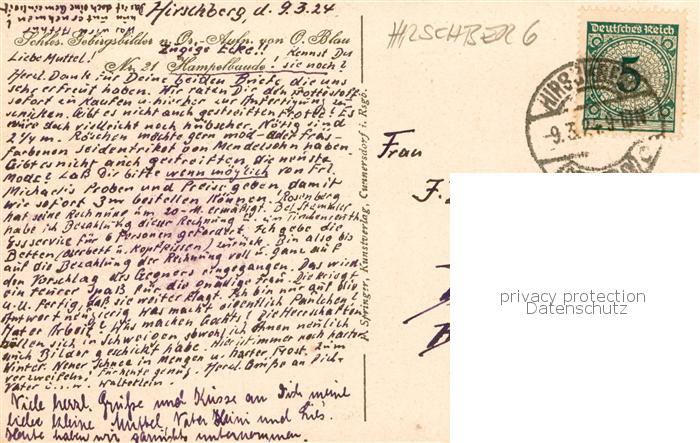 Hirschberg, d. 9.3.24
HIRSCHBERG
Schles. Gebirgsbilder n. Or.-Aufn. von O. Blau
Nr. 21 Hampelbaude
einzige Ecke!! Kennst Du
sie noch?
Liebe Muttel!
Herzl. Dank für Deine beiden Briefe, die uns
sehr erfreut haben. Wir raten Dir den Frottéstoff
sofort zu kaufen u. hierher zur Anfertigung zu
schicken. Gibt es nicht auch gestreiften Frotté? Es
wäre doch vielleicht noch hübscher. Nötig sind
2½ m. Röschen möchte gern mod-
farbenen Seidentrikot von Mendelsohn haben.
Gibt es nicht auch gestreiften, die neuste
Mode? Laß Dir bitte wenn möglich von Frl.
Michaelis Proben und Preise geben, damit
wir sofort 3m bestellen können. Rosenberg
hat seine Rechnung um 20-M. ermäßigt. Bei
habe ich Bezahlung dieser Rechnung u.
Essservice für 6 Personen gefordert. Ich gebe die
Betten (Oberbett u. Kopfkissen) zurück. Bin also bis
auf die Bezahlung der Rechnung voll u. ganz auf
den Vorschlag des Gegners eingegangen. Das wird
ein teurer Spaß für die gnädige Frau. Die kriegt
u.U. fertig, daß sie weiter klagt. Ich bin nur auf die
Antwort neugierig. Was macht eigentlich Paulchen?
Hat er Arbeit? Was machen Gachts? Die Herrschaften
hüllen sich in Schweigen obwohl ich Ihnen neulich
auch Bilder geschickt habe. Hier ist immer noch harter
Winter. Neuer Schnee in Mengen u. harter Frost. Zum
verzweifeln! Für heute genug. Herzl. Grüße an Dich,
Vater u.s.w. Walterlein.
Viele herzl. Grüße und Küsse an Dich meine
liebe kleine Muttel, Vater Heini und Lies.
Heute haben wir garnichts unternommen.
P. Springer, Kunstverlag, Cunnersdorf i. Rsgb.
Deutsches Reich
5
HIRSCHBERG
-9.3.24
Frau
privacy protection
Datenschutz